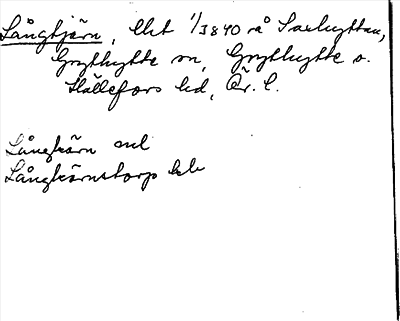 Långtjärn, lht 1/3840 å Saxhyttan,
Grythytte sn, Grythytte o.
Hällefors hd, Ör. l.
Långtärn
Långtärnstorp